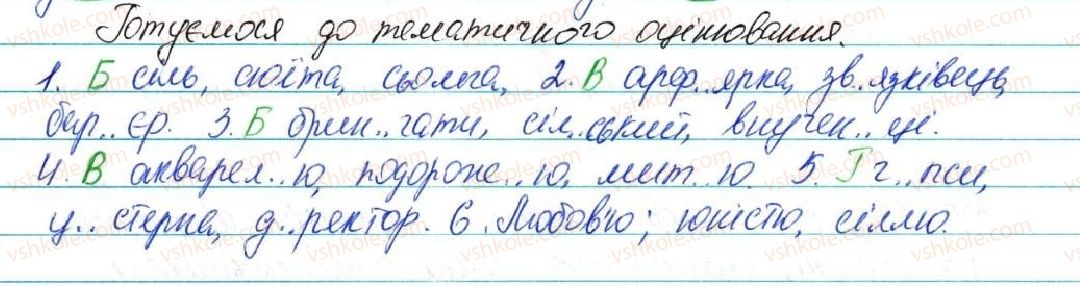 Готуємося до тематичного оцінювання.
1. Б сіль, сюїта, сьомга, 2. В арф..ярка, зв..язківець,
бар..єр. 3. Б брин..чати, сіл..ський, внучен..ці.
4. В акварел..ю, подорож..ю, мит..ю. 5. Г г..пси,
ц..стерна, д..ректор. 6. Любов'ю; юністю, сіллю.